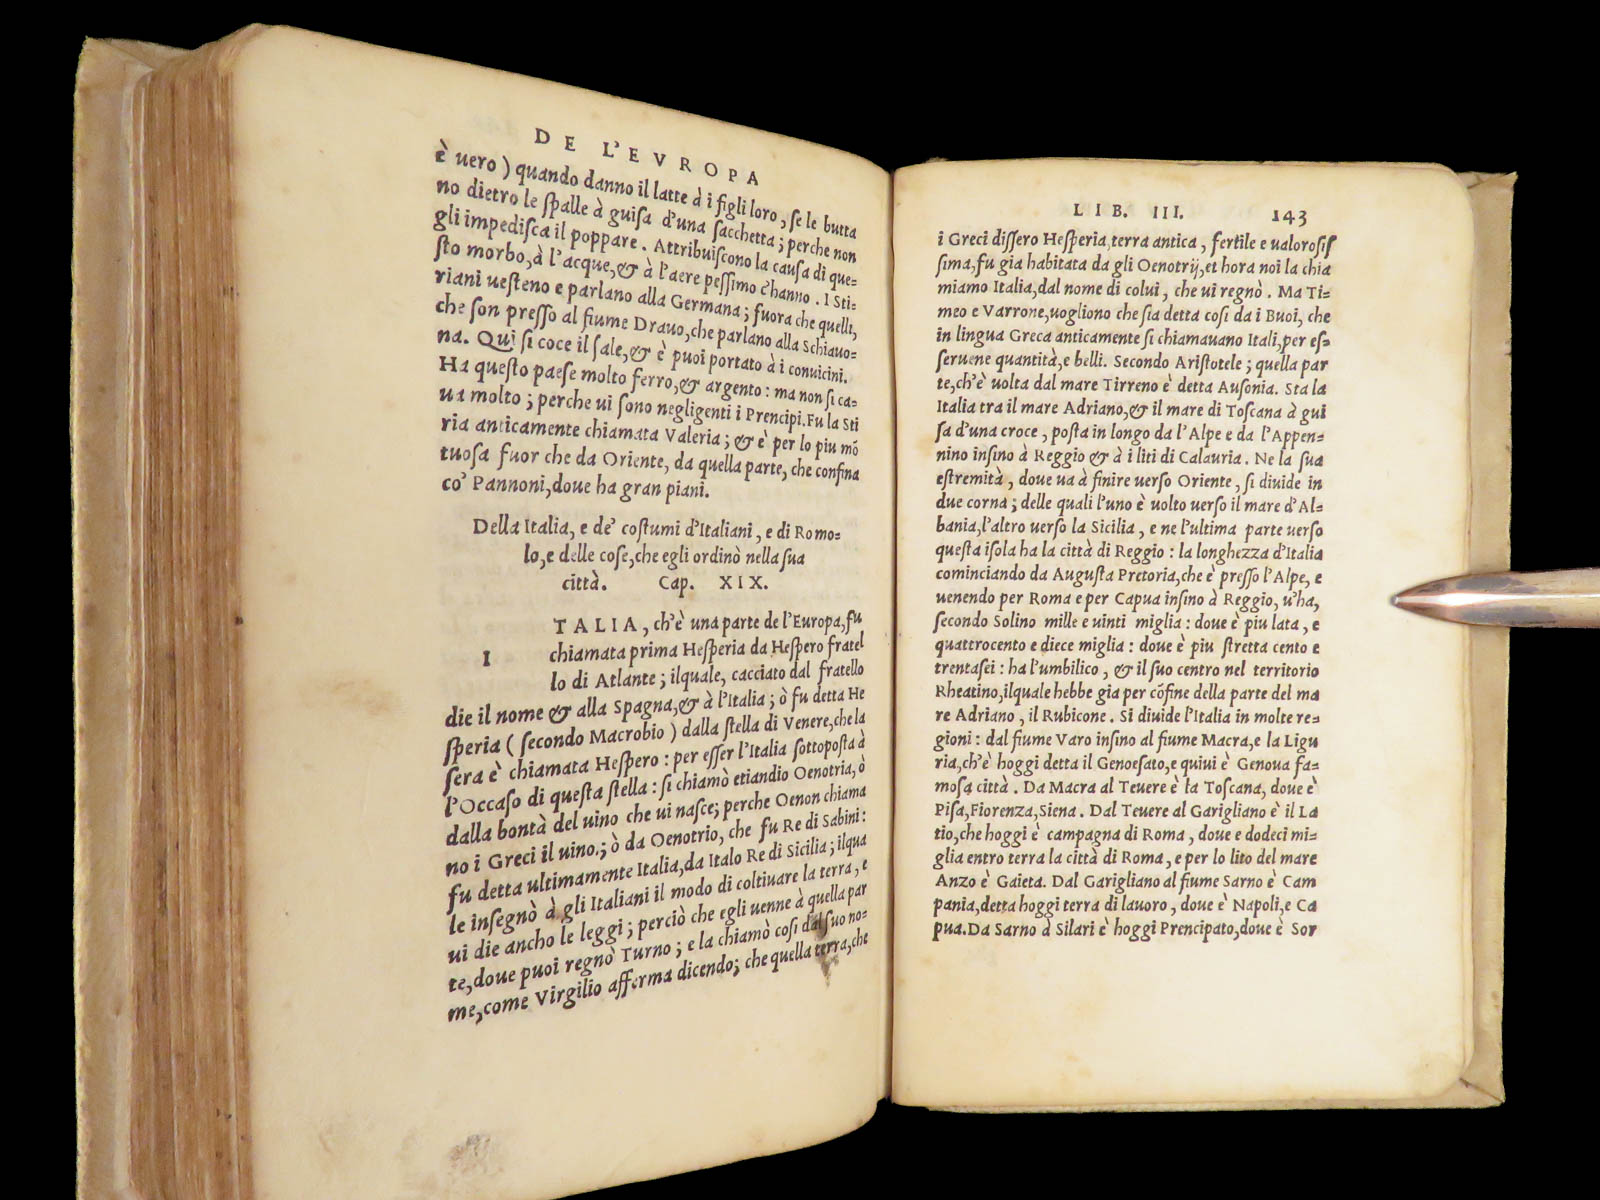 DE L'EVROPA
è uero) quando danno il latte à i figli loro, se le butta
no dietro le spalle à guisa d'una sacchetta; perche non
gli impedisca il poppare. Attribuiscono la causa di que-
sto morbo, à l'acque, & à l'aere pessimo c'hanno. I Sti-
riani uesteno e parlano alla Germana; fuora che quelli,
che son presso al fiume Drauo, che parlano alla Schiauo-
na. Qui si coce il sale, & è puoi portato à i conuicini.
Ha questo paese molto ferro, & argento: ma non si ca-
ua molto; perche ui sono negligenti i Prencipi. Fu la Sti
ria anticamente chiamata Valeria; & è per lo piu mō
tuosa fuor che da Oriente, da quella parte, che confina
co' Pannoni, doue ha gran piani.
Della Italia, e de' costumi d'Italiani, e di Romo-
lo, e delle cose, che egli ordinò nella sua
città. Cap. XIX.
I TALIA, ch'è una parte de l'Europa, fu
chiamata prima Hesperia da Hespero fratel
lo di Atlante; ilquale, cacciato dal fratello
die il nome & alla Spagna, & à l'Italia; ò fu detta He
speria (secondo Macrobio) dalla stella di Venere, che la
sera è chiamata Hespero: per esser l'Italia sottoposta à
l'Occaso di questa stella: si chiamò etiandio Oenotria, ò
dalla bontà del uino che ui nasce; perche Oenon chiama
no i Greci il uino.; ò da Oenotrio, che fu Re di Sabini:
fu detta ultimamente Italia, da Italo Re di Sicilia; ilqua
le insegnò à gli Italiani il modo di coltiuare la terra, e
ui die ancho le leggi; perciò che egli uenne à quella par
te, doue puoi regnò Turno; e la chiamò cosi dal suo no-
me, come Virgilio afferma dicendo; che quella terra, che
LIB. III. 143
i Greci dissero Hesperia, terra antica, fertile e ualorosis
sima, fu gia habitata da gli Oenotrij, et hora noi la chia
miamo Italia, dal nome di colui, che ui regnò. Ma Ti-
meo e Varrone, uogliono che sia detta cosi da i Buoi, che
in lingua Greca anticamente si chiamauano Itali, per es-
seruene quantità, e belli. Secondo Aristotele; quella par
te, ch'è uolta dal mare Tirreno è detta Ausonia. Sta la
Italia tra il mare Adriano, & il mare di Toscana à gui
sa d'una croce, posta in longo da l'Alpe e da l'Appen-
nino insino à Reggio & à i liti di Calauria. Ne la sua
estremità, doue ua à finire uerso Oriente, si diuide in
due corna; delle quali l'uno è uolto uerso il mare d'Al-
bania, l'altro uerso la Sicilia, e ne l'ultima parte uerso
questa isola ha la città di Reggio: la longhezza d'Italia
cominciando da Augusta Pretoria, che è presso l'Alpe, e
uenendo per Roma e per Capua insino à Reggio, u'ha,
secondo Solino mille e uinti miglia: doue è piu lata, e
quattrocento e diece miglia: doue è piu stretta cento e
trentasei: ha l'umbilico, & il suo centro nel territorio
Rheatino, ilquale hebbe gia per cōfine della parte del ma
re Adriano, il Rubicone. Si diuide l'Italia in molte re-
gioni: dal fiume Varo insino al fiume Macra, e la Ligu
ria, ch'è hoggi detta il Genoesato, e quiui è Genoua fa-
mosa città. Da Macra al Teuere è la Toscana, doue è
Pisa, Fiorenza, Siena. Dal Teuere al Garigliano è il La
tio, che hoggi è campagna di Roma, doue e dodeci mi-
glia entro terra la città di Roma, e per lo lito del mare
Anzo è Gaieta. Dal Garigliano al fiume Sarno è Cam
pania, detta hoggi terra di lauoro, doue è Napoli, e Ca
pua. Da Sarno à Silari è hoggi Prencipato, doue è Sor